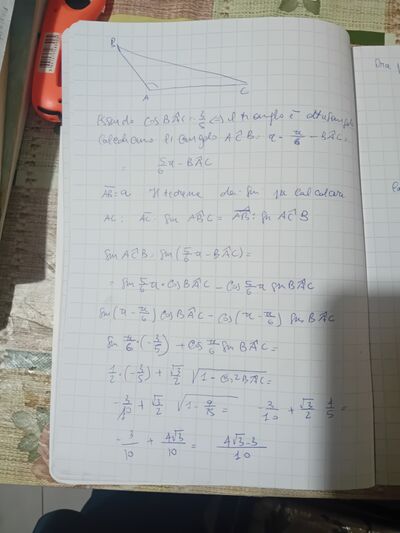 B
A
C
Essendo cos BÂC = -3/5 <=> il triangolo è ottusangolo
Calcoliamo l'angolo AĈB = π - π/6 - BÂC =
5/6 π - BÂC
AB = a Il teorema dei sin per calcolare
AC: AC : sin AB̂C = AB : sin AĈB
sin AĈB = sin (5/6 π - BÂC) =
= sin 5/6 π · cos BÂC - cos 5/6 π sin BÂC
sin (π - π/6) cos BÂC - cos (π - π/6) sin BÂC
sin π/6 · (-3/5) + cos π/6 sin BÂC =
1/2 · (-3/5) + √3/2 √1 - cos² BÂC =
-3/10 + √3/2 √1 - 9/25 = -3/10 + √3/2 4/5 =
-3/10 + 4√3/10 = 4√3-3/10
Ora